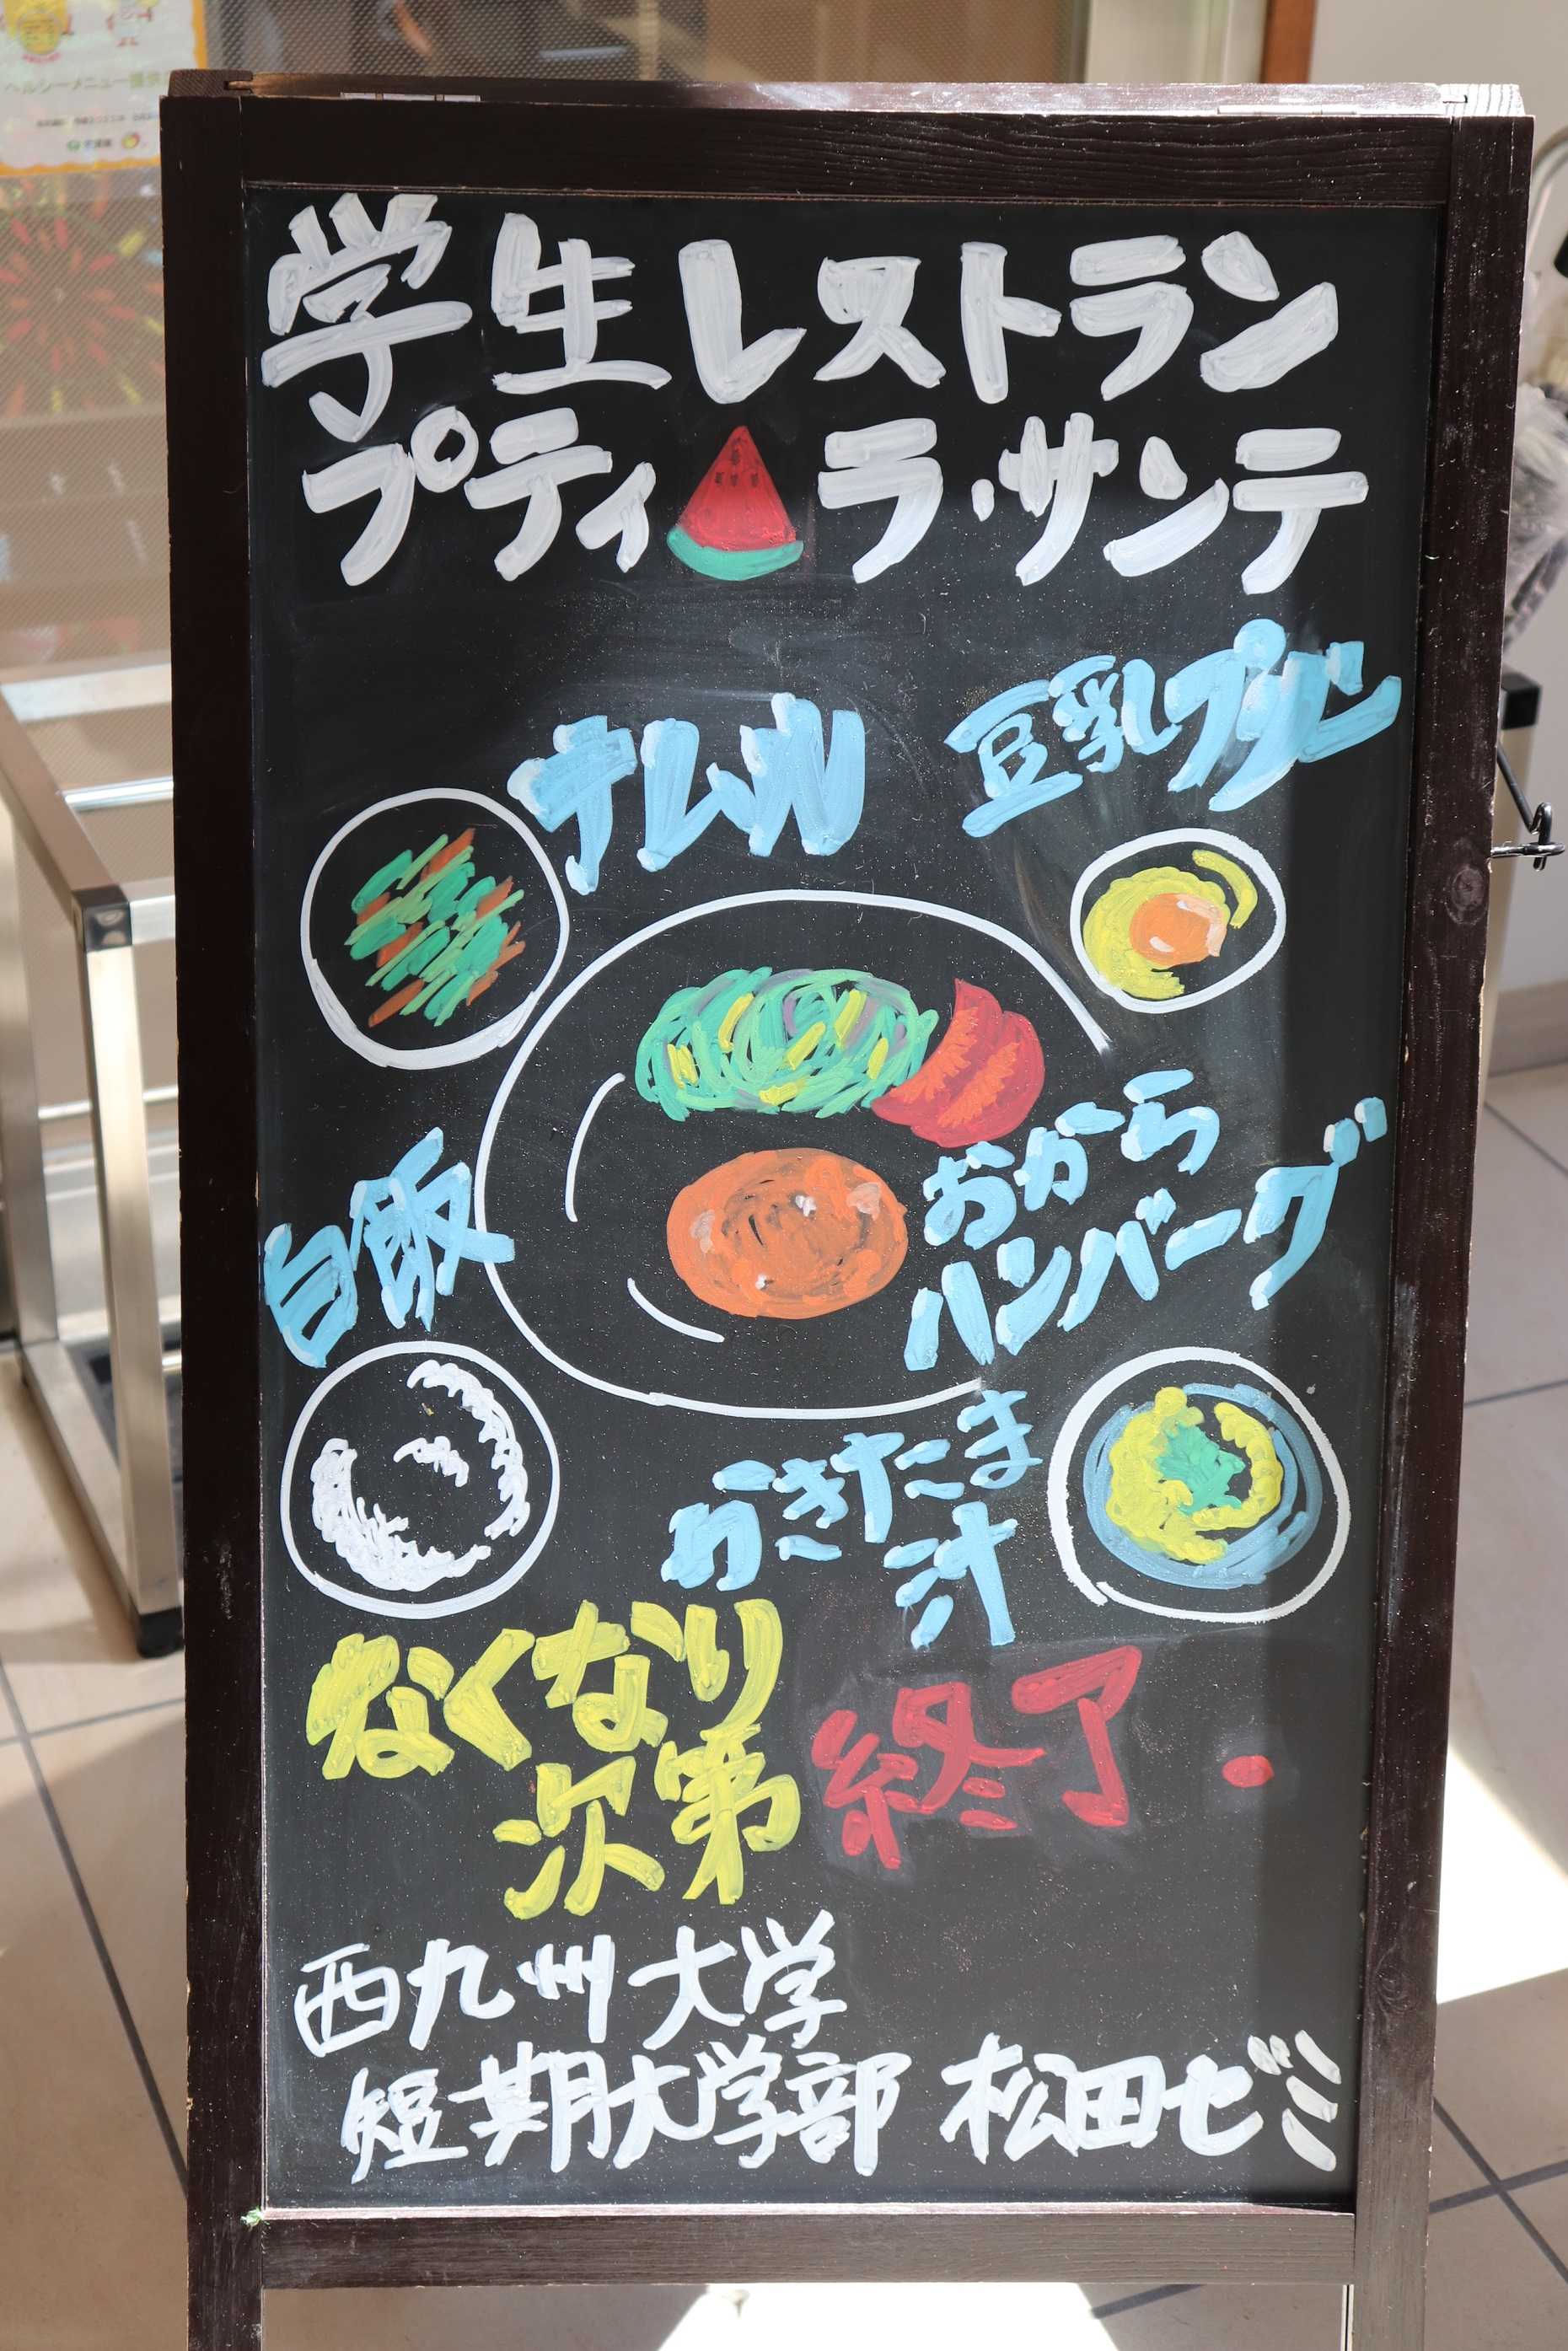 学生レストラン
プティ ラ・サンテ
ナムル
豆乳プリン
おから
ハンバーグ
白飯
かきたま
汁
なくなり
次第
終了
西九州大学
短期大学部 松田ゼミ